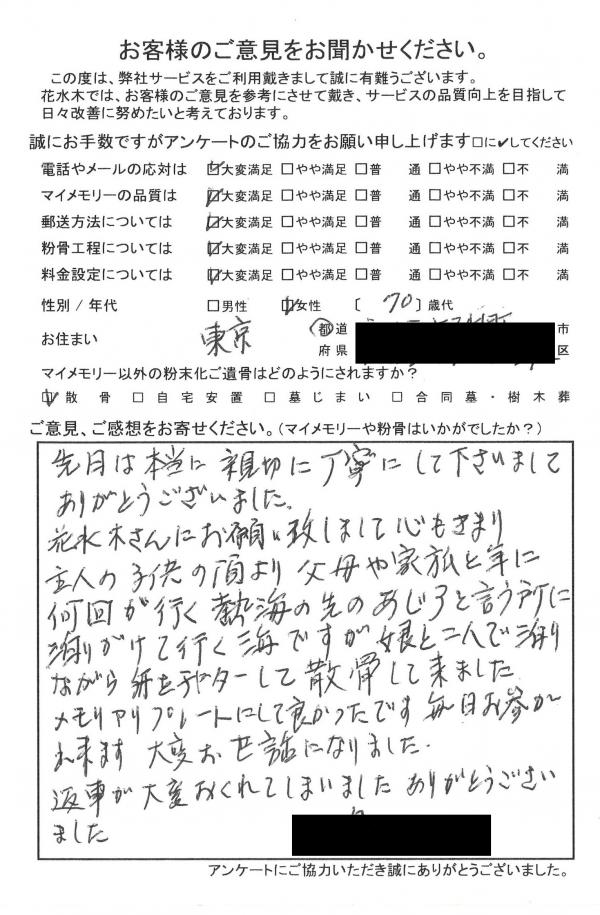 お客様のご意見をお聞かせください。
この度は、弊社サービスをご利用戴きまして誠に有難うございます。
花水木では、お客様のご意見を参考にさせて戴き、サービスの品質向上を目指して
日々改善に努めたいと考えております。
誠にお手数ですがアンケートのご協力をお願い申し上げます□に✔してください
電話やメールの応対は ☑大変満足 □やや満足 □普 通 □やや不満 □不 満
マイメモリーの品質は ☑大変満足 □やや満足 □普 通 □やや不満 □不 満
郵送方法については ☑大変満足 □やや満足 □普 通 □やや不満 □不 満
粉骨工程については ☑大変満足 □やや満足 □普 通 □やや不満 □不 満
料金設定については ☑大変満足 □やや満足 □普 通 □やや不満 □不 満
性別 / 年代 □男性 ☑女性 〔 70 〕歳代
お住まい 東京 都道府県 市区
マイメモリー以外の粉末化ご遺骨はどのようにされますか？
☑散 骨 □自宅安置 □墓じまい □合同墓・樹木葬
ご意見、ご感想をお寄せください。(マイメモリーや粉骨はいかがでしたか？)
先月は本当に親切に丁寧にして下さいまして
ありがとうございました。
花水木さんにお願い致しまして心もきまり
主人の子供の頃より父母や家族と年に
何回が行く熱海の先のあじろと言う所に
海ですが娘と二人で
ながら 散骨して来ました
メモリアリプレートにして良かったです毎日お参が
出来ます 大変お世話になりました.
返事が大変おくれてしまいました ありがとうござい
ました
アンケートにご協力いただき誠にありがとうございました。